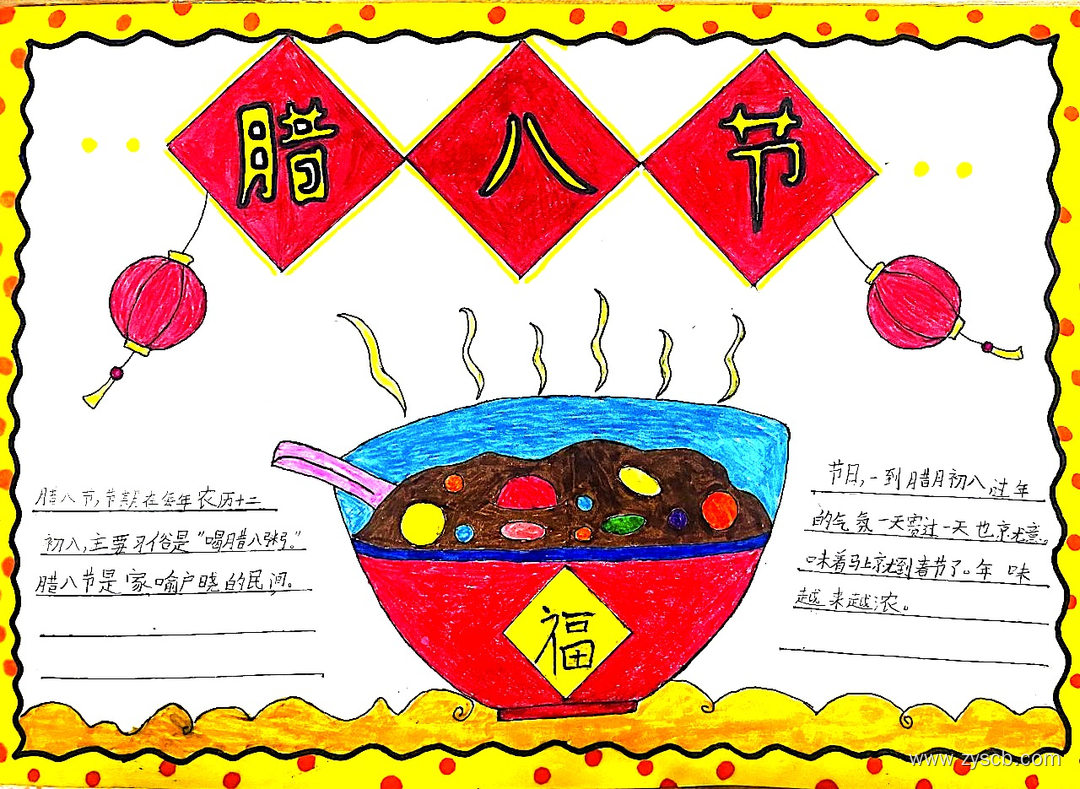 腊八节
腊八节,节期在每年农历十二
初八,主要习俗是“喝腊八粥”。
腊八节是家喻户晓的民间。
节日,一到腊月初八,过年
的气氛一天赛过一天也就意
味着马上就到春节了。年味
越来越浓。
福
www.zyscb.com